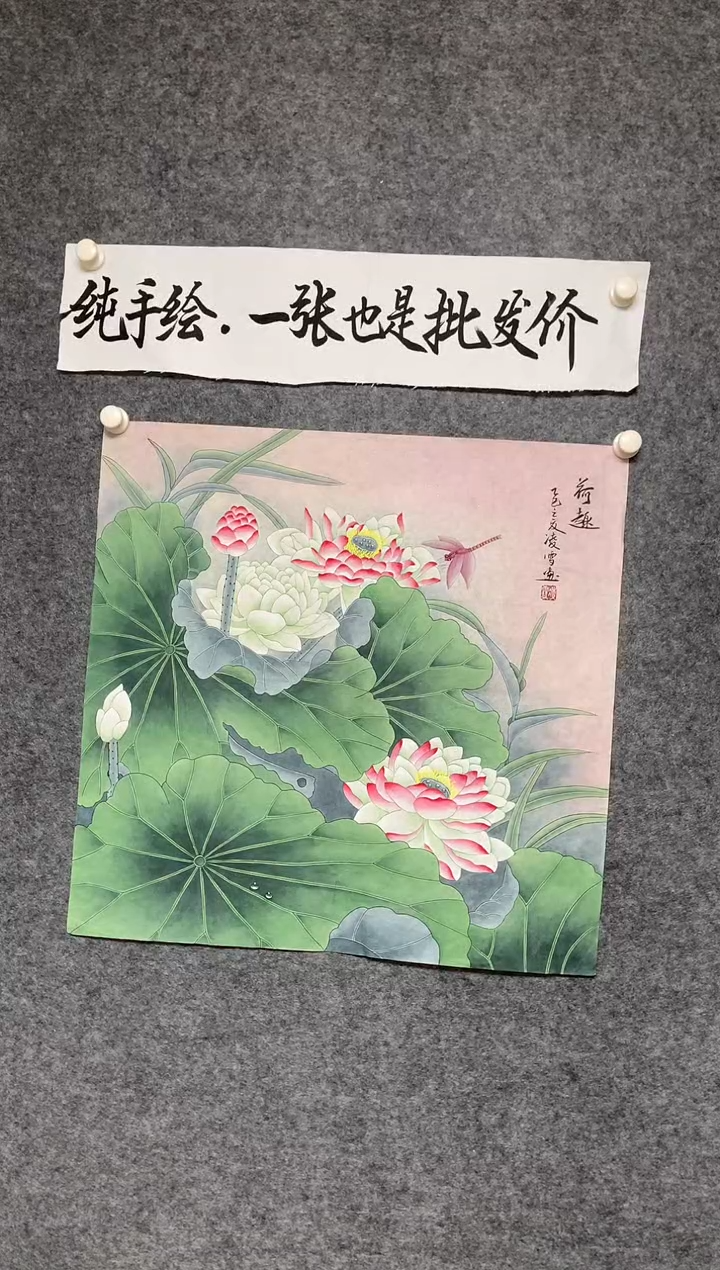 纯手绘.一张也是批发价
荷趣
乙巳之夏凌雪画